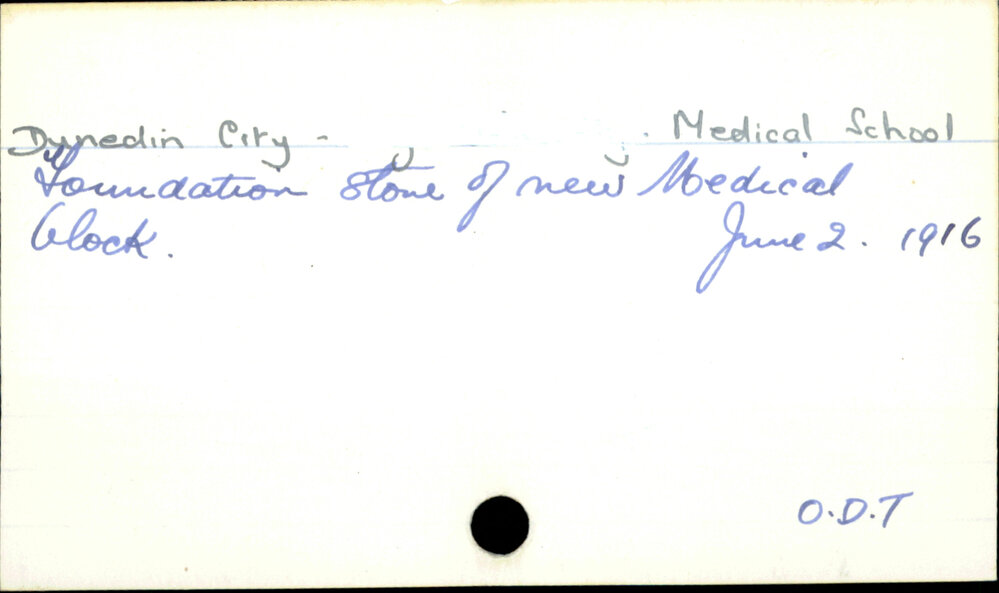 Dunedin City - Medical School
Foundation stone of new Medical
block. June 2. 1916
O.D.T